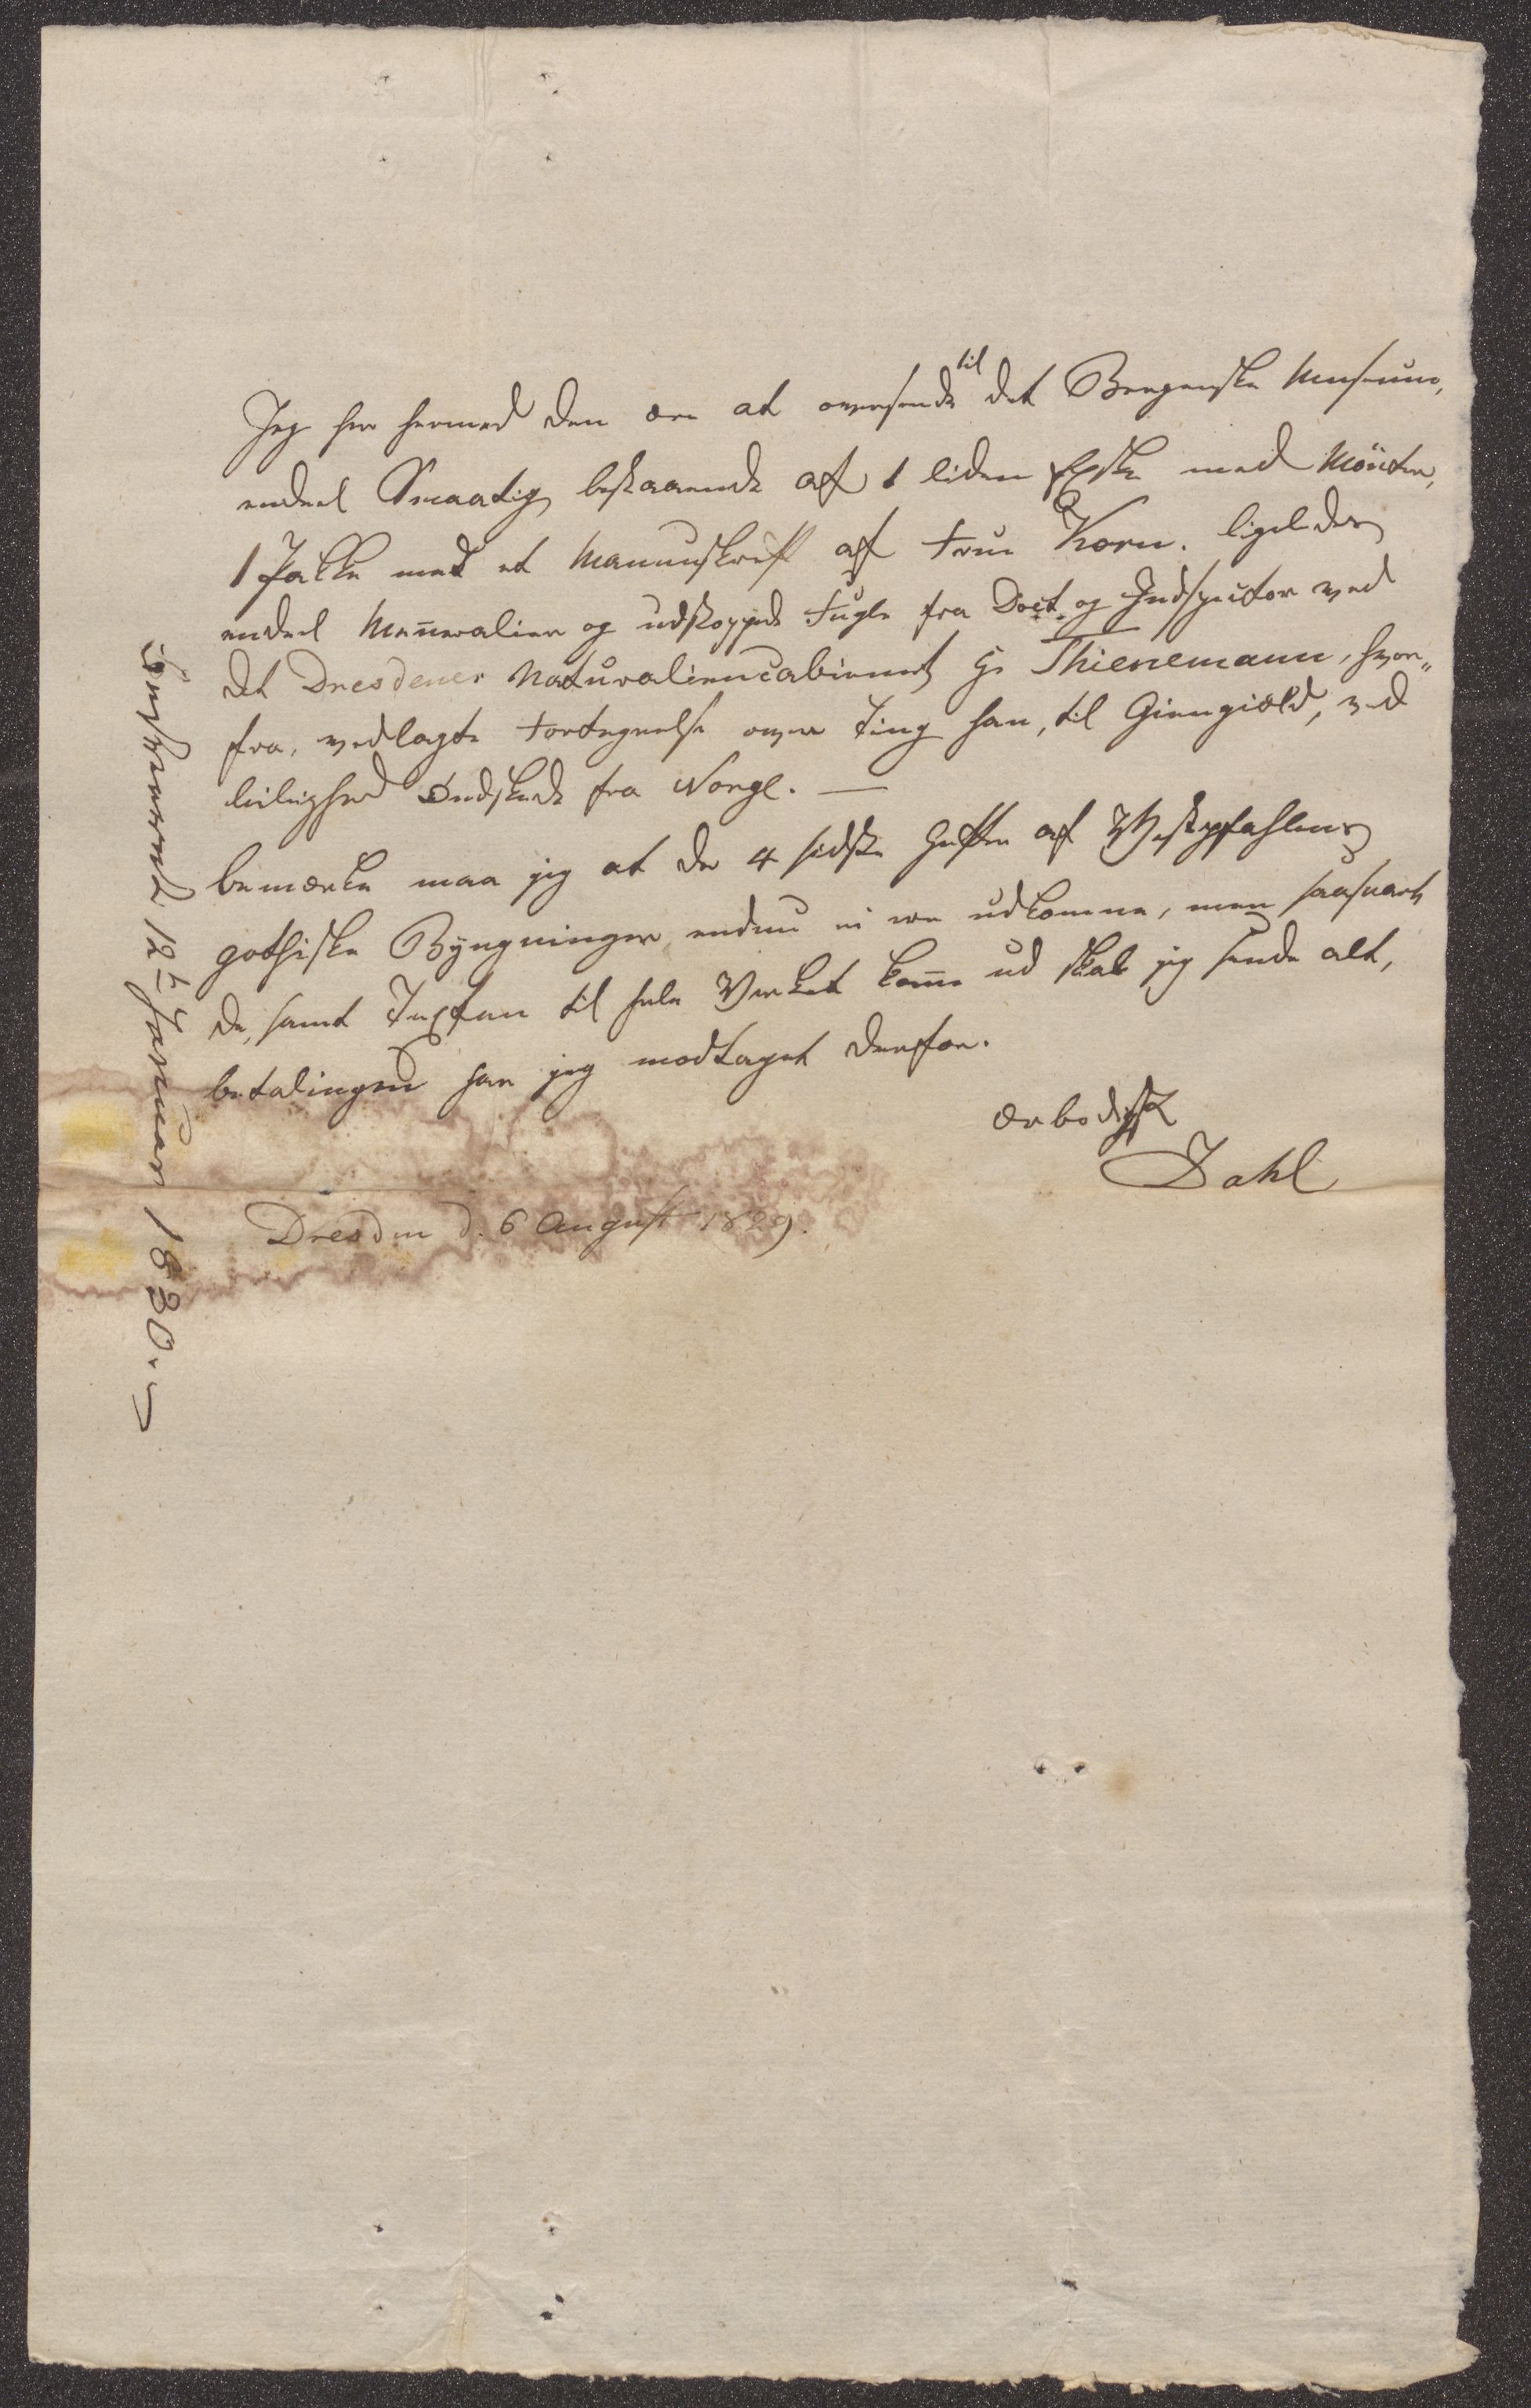 Jeg har hermed den ære at oversende til det Bergenske Museum,
endeel Smaating bestaaende af 1 liden Eske med Mönter,
1 Pakke med et Manuuskrift af Frue Korn. ligeledes
endeel Menneralier og udstoppede Fugle fra Doct. og Indspector ved
det Dresdener Naturaliencabinet Hr Thienemann, hvor„
fra, vedlagte Fortegnelse over Ting han, til Giengiæld, ved
leilighed Øndskede fra Norge. —
bemærke maa jeg at de 4 sidste Hefter af
gothiske Bÿngninger, endnu ei ere udkomne, men saasnart
de, samt Texten til hele Verket komme ud skal jeg sende alt,
betalingen har jeg modtaget derfor.
ærbødigst
Dahl
Dresden d. 6 August 1829.
12te Januar 1830.